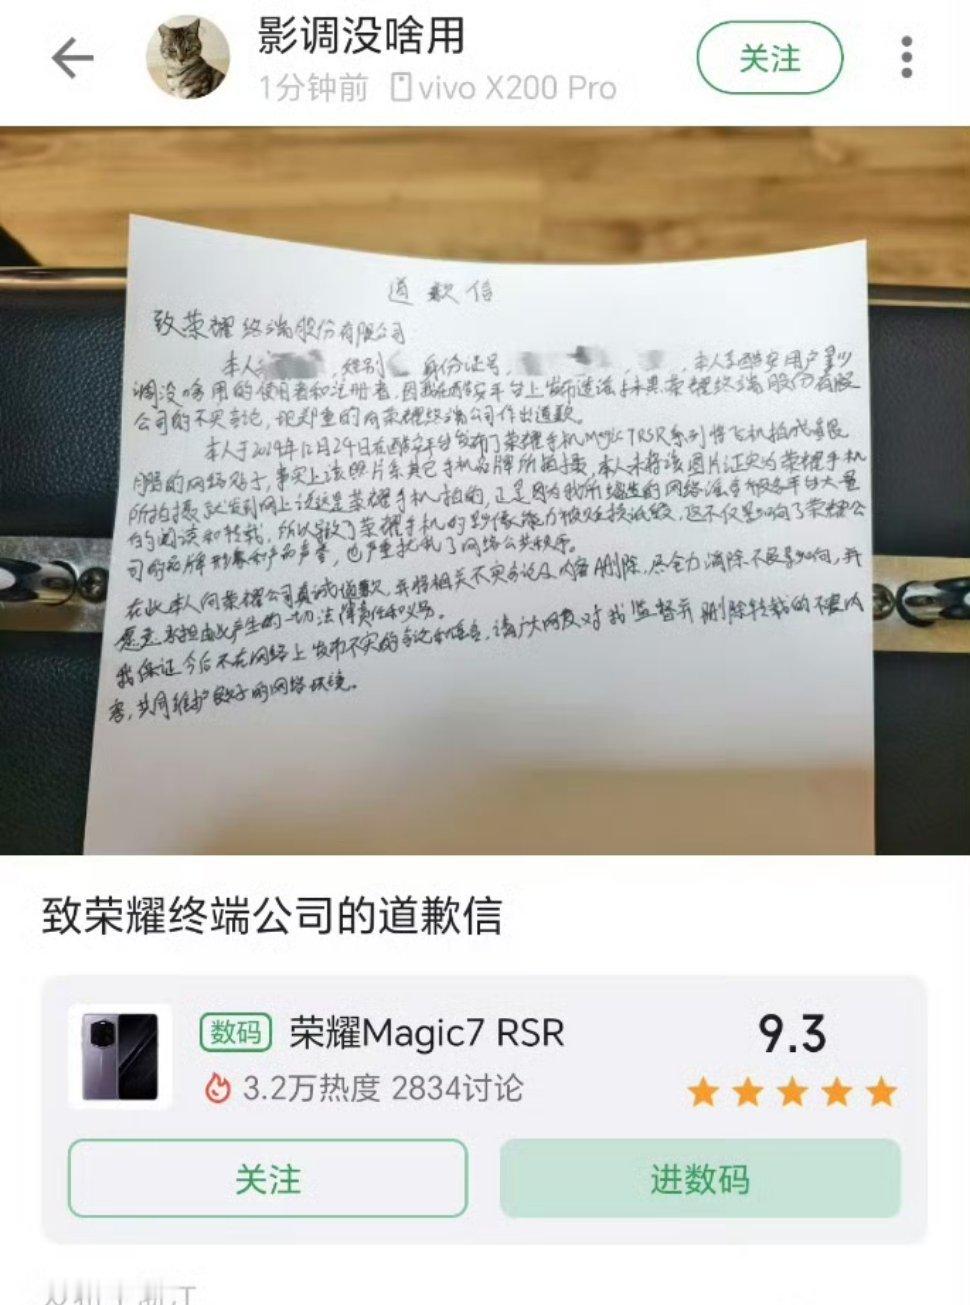 影调没啥用
1分钟前 vivo X200 Pro
关注
道歉信
致荣耀终端股份有限公司
本人 性别 身份证号 本人是酷安用户影
调没啥用的使用者和注册者,因我在酷安平台上发布违法 荣耀终端股份有限
公司的不实言论,现郑重的向荣耀终端公司作出道歉。
本人于2024年12月24日在酷安平台发布了荣耀手机Magic7RSR系列将飞机拍成
的网络贴子,事实上该照片系其它手机品牌所拍摄,本人未将该图片证实为荣耀手机
所拍摄就发到网上说这是荣耀手机拍的,正是因为我所 的网络 被各平台大量
的阅读和转载,所以导致了荣耀手机的影像能力被 ,这不仅影响了荣耀公
司的品牌形象和产品声誉,也严重扰乱了网络公共秩序。
在此本人向荣耀公司真诚道歉,并将相关不实言论及内容删除,尽全力消除不良影响,并
愿意承担由此产生的一切法律责任和义务。
我保证今后不在网络上发布不实的言论和信息,请广大网友对我监督并删除转载的不良内
容,共同维护良好的网络环境。
致荣耀终端公司的道歉信
数码 荣耀Magic7 RSR
9.3
3.2万热度 2834讨论
关注
进数码